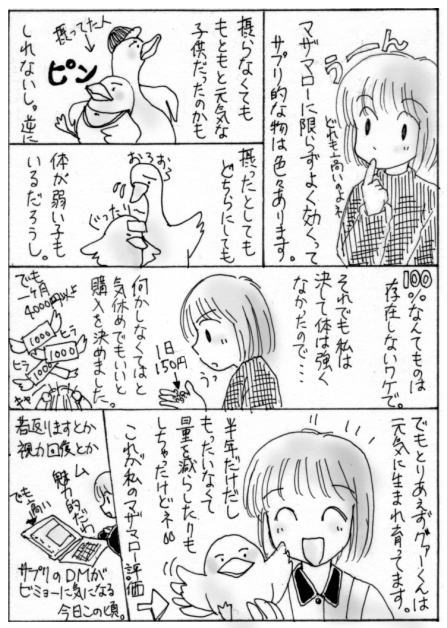 うーん
マザマローに限らずよく効くって
サプリ的な物は色々あります。
どれも高いのよネ
摂ってた人
ピン
摂らなくても
もともと元気な
子供だったのかも
しれないし。逆に
摂ったとしても
どちらにしても
おろおろ
ぐったり
体が弱い子も
いるだろうし。
100%なんてものは
存在しないワケで。
それでも私は
決して体は強く
なかったので…
うっ
1日
150円
何かしなくてはと
気休めでもいいと
購入を決めました。
でも
一ヶ月
4000円以上
1000
1000
1000
ヒラ
ヒラ
でもとりあえずグァーくんは
元気に生まれ育ってます。
半年だけだし
もったいなくて
量を減らしたりも
しちゃたけどネ
これが私のマザマロー評価
若返りますとか
視力回復とか
ム
魅力的だわ
でも
高い
サプリのDMが
ビミョーに気になる
今日この頃。